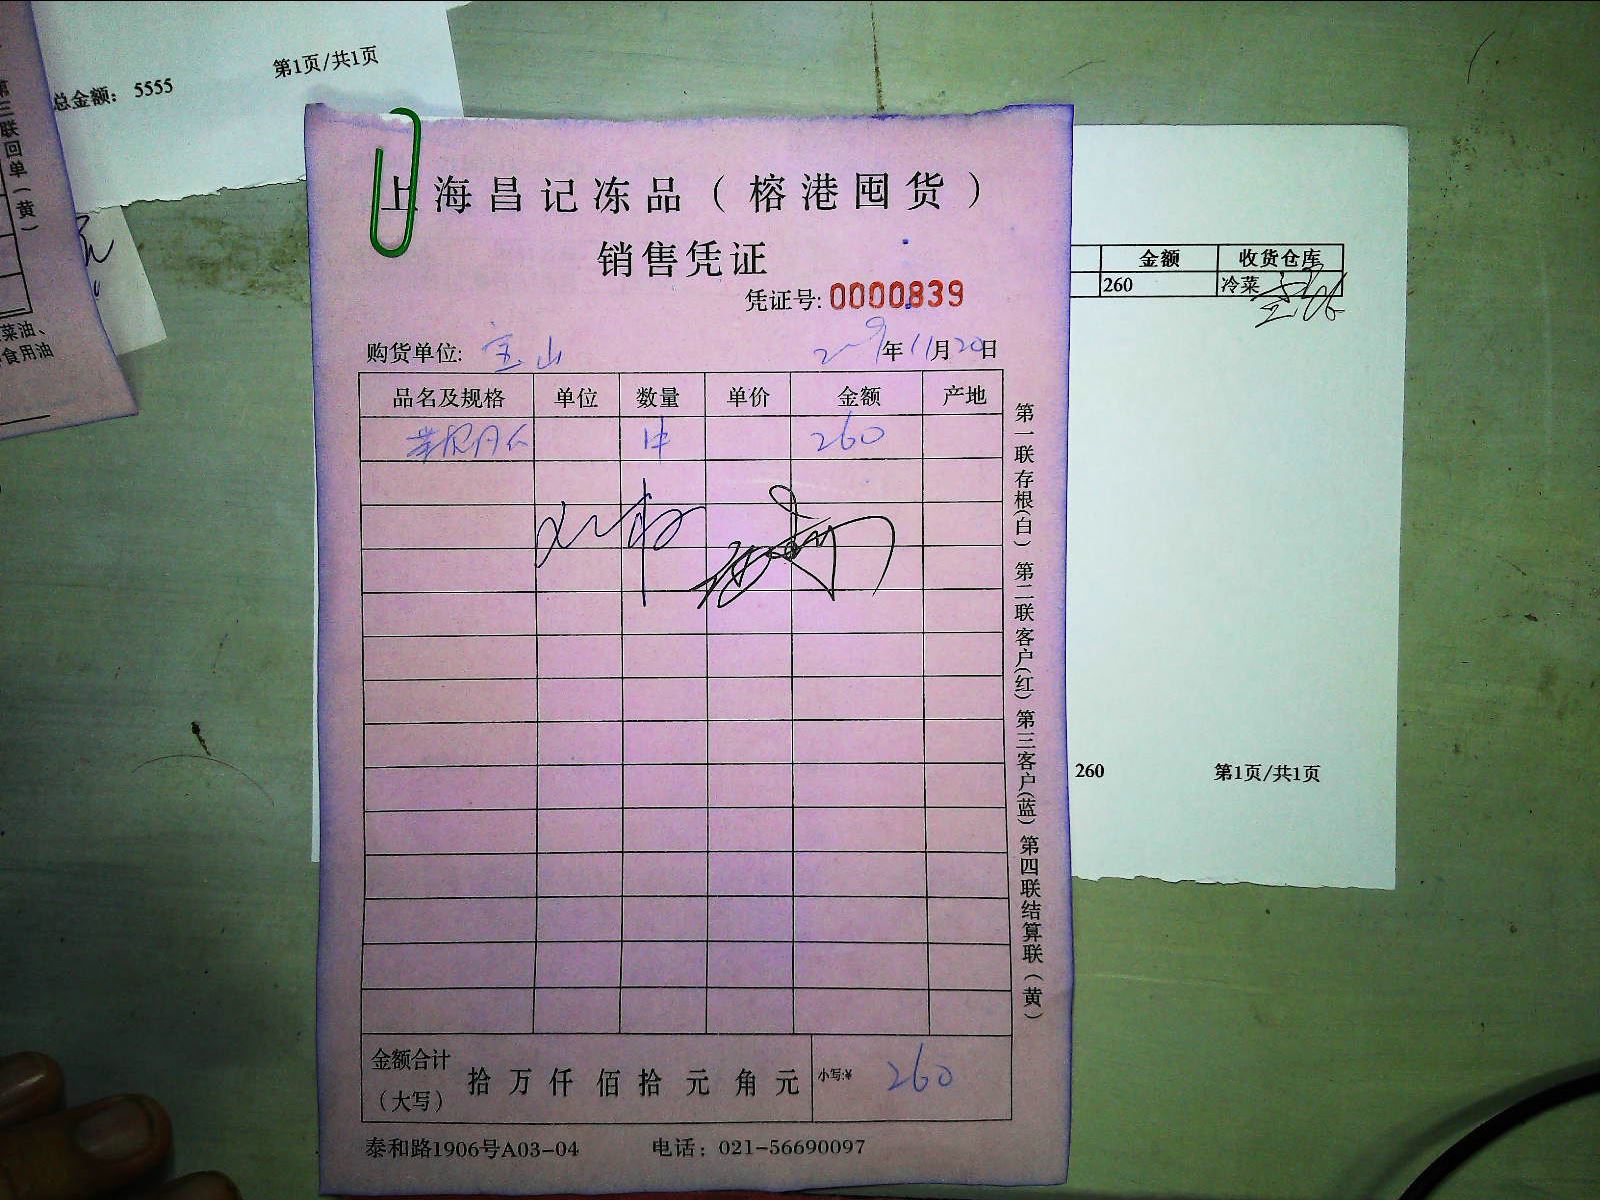 第1页/共1页
总金额: 5555
第三联回单(黄)
菜油、
食用油
上海昌记冻品(榕港囤货)
销售凭证
凭证号: 0000839
购货单位: 宝山 年11月20日
品名及规格 单位 数量 单价 金额 产地
1件 260
第一联存根(白) 第二联客户(红) 第三客户(蓝) 第四联结算联(黄)
金额合计(大写) 拾万仟佰拾元角元 小写:¥ 260
泰和路1906号A03-04 电话: 021-56690097
金额 收货仓库
260 冷菜
260 第1页/共1页